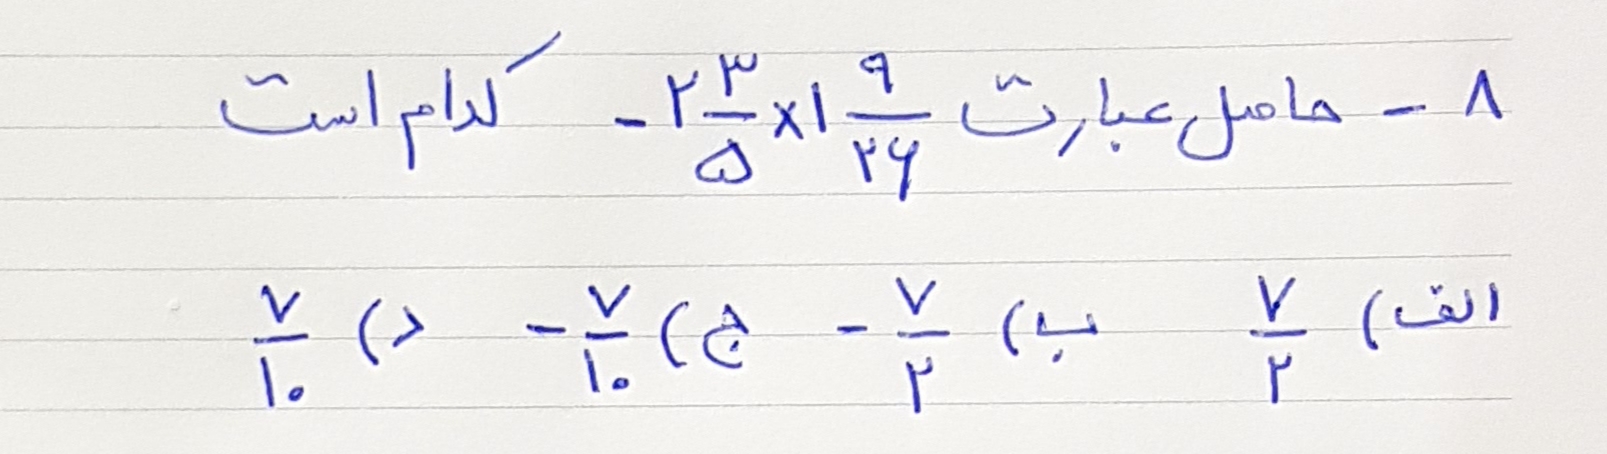 ۸ - حاصل عبارت -۲ ۳/۵ × ۱ ۹/۲۶ کدام است
الف) ۷/۲ ب) -۷/۲ ج) -۷/۱۰ د) ۷/۱۰